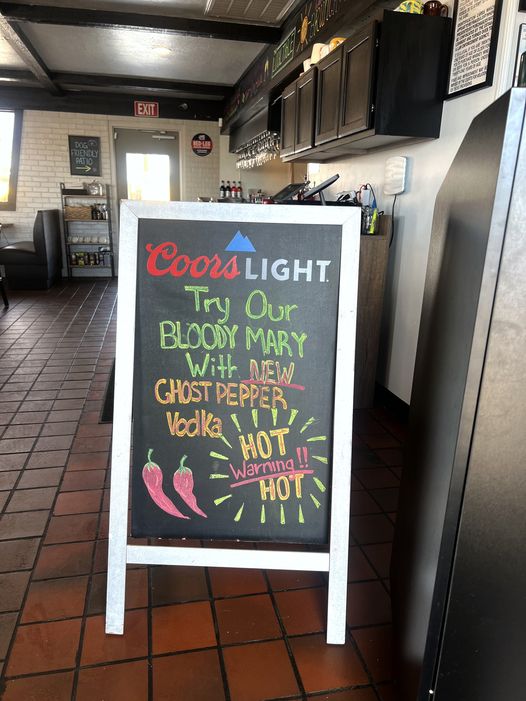 EXIT
DOG
FRIENDLY
PATIO
Coors LIGHT
Try Our
BLOODY MARY
With NEW
GHOST PEPPER
Vodka
HOT
Warning!!
HOT